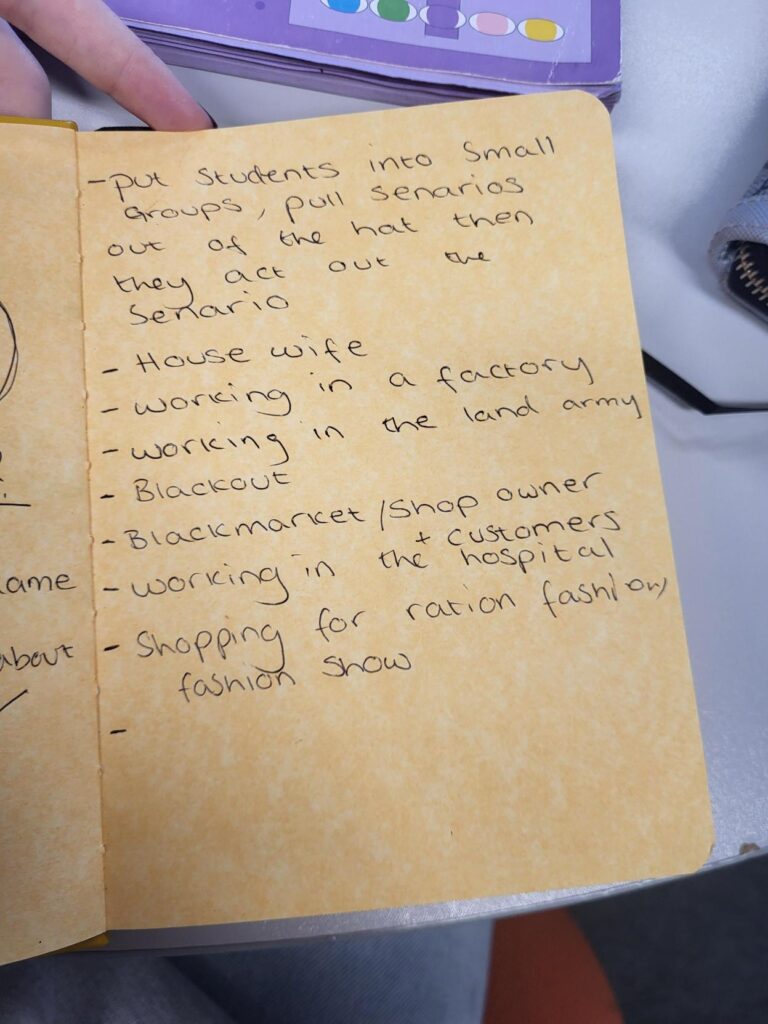 - put students into small
groups, pull senarios
out of the hat then
they act out the
senario
- House wife
- working in a factory
- working in the land army
- Blackout
- Blackmarket / shop owner
+ customers
- working in the hospital
- Shopping for ration fashion,
fashion show
-
?
ame
about